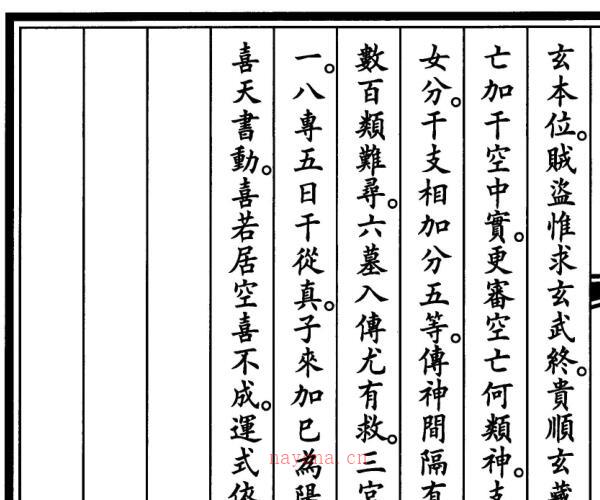 玄本位。賊盜惟求玄武終。貴順玄藏
亡加干空中實。更審空亡何類神。支
女分。干支相加分五等。傳神間隔有
數百類難尋。六墓入傳尤有救。三宮
一。八專五日干從真。子來加巳為陽
喜天書動。喜若居空喜不成。運式依
nayona.cn